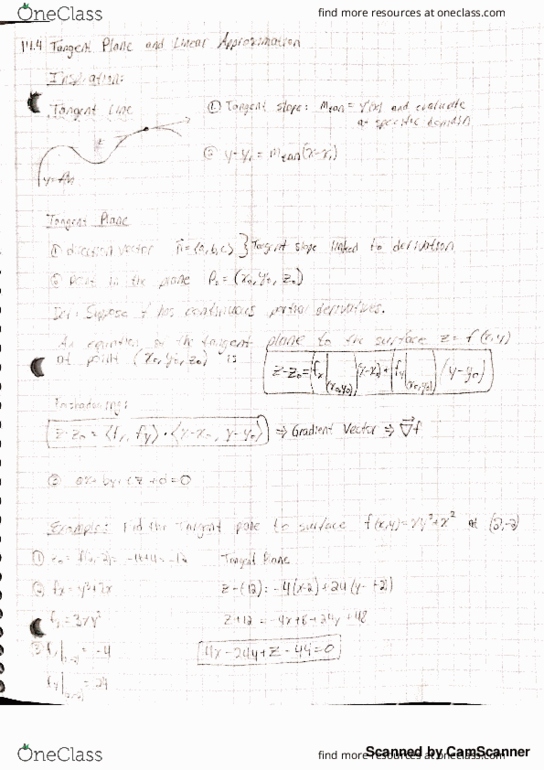 OneClass
find more resources at oneclass.com
14.4 Tangent Plane and Linear Approximation
Inspiration:
Tangent Line
① Tangent slope: m_tan = y'(x) and evaluate
at specific domain
② y-y₁ = m_tan(x-x₁)
y=f(x)
Tangent Plane
① direction vector n⃗=⟨a,b,c⟩ } Tangent slope linked to derivation
② point in the plane P₀ = (x₀, y₀, z₀)
Def: Suppose f has continuous partial derivatives.
An equation of the tangent plane to the surface z = f(x,y)
at point (x₀, y₀, z₀) is
z-z₀ = [fx|(x₀,y₀)](x-x₀) + [fy|(x₀,y₀)](y-y₀)
z-z₀ = ⟨fx, fy⟩ · ⟨x-x₀, y-y₀⟩ ⇒ Gradient Vector ⇒ ∇⃗f
③ ax + by + cz + d = 0
Example: Find the Tangent plane to surface f(x,y)=xy³+x² at (2,-2)
① z₀ = f(2,-2) = -16+4 = -12
Tangent Plane
② fx = y³+2x
z-(-12) = -4(x-2)+24(y-(-2))
fy = 3xy²
z+12 = -4x+8+24y+48
③ fx|(2,-2) = -4
4x-24y+z-44=0
fy|(2,-2) = 24
OneClass
find more resources at oneclass.com
Scanned by CamScanner